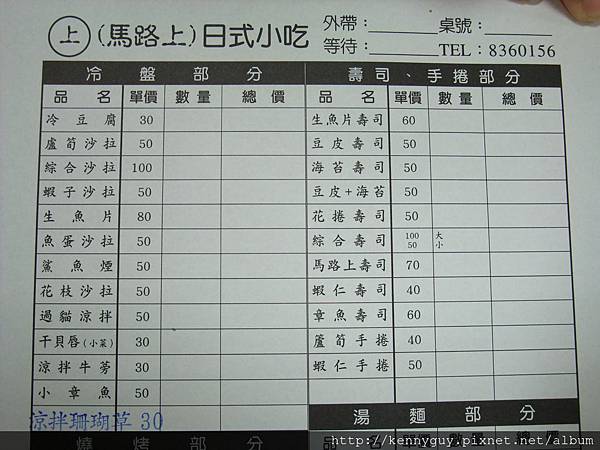 上 (馬路上)日式小吃 外帶：________桌號：________
等待：________TEL：8360156
冷盤部分
品名 單價 數量 總價
冷豆腐 30
盧筍沙拉 50
綜合沙拉 100
蝦子沙拉 50
生魚片 80
魚蛋沙拉 50
鯊魚煙 50
花枝沙拉 50
過貓涼拌 50
干貝唇(小菜) 30
涼拌牛蒡 30
小章魚 50
涼拌珊瑚草 30
燒烤部分
壽司、手捲部分
品名 單價 數量 總價
生魚片壽司 60
豆皮壽司 50
海苔壽司 50
豆皮+海苔 50
花捲壽司 50
綜合壽司 100 大
50 小
馬路上壽司 70
蝦仁壽司 40
章魚壽司 60
蘆筍手捲 40
蝦仁手捲 50
湯麵部分
品名 單價 數量 總價
http://kennyguy.pixnet.net/album